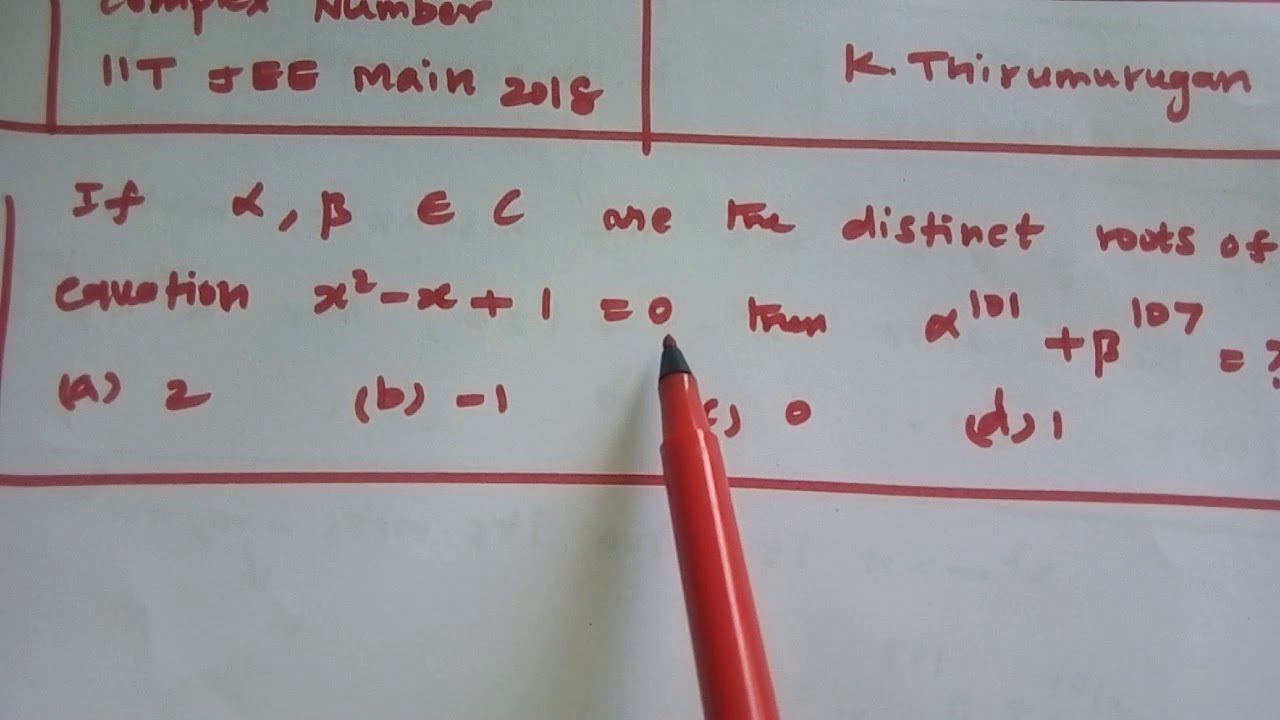 Complex Number
IIT JEE Main 2018
K. Thirumurugan
If α, β ∈ C are the distinct roots of
equation x² - x + 1 = 0 then α¹⁰¹ + β¹⁰⁷ = ?
(a) 2 (b) -1 (c) 0 (d) 1